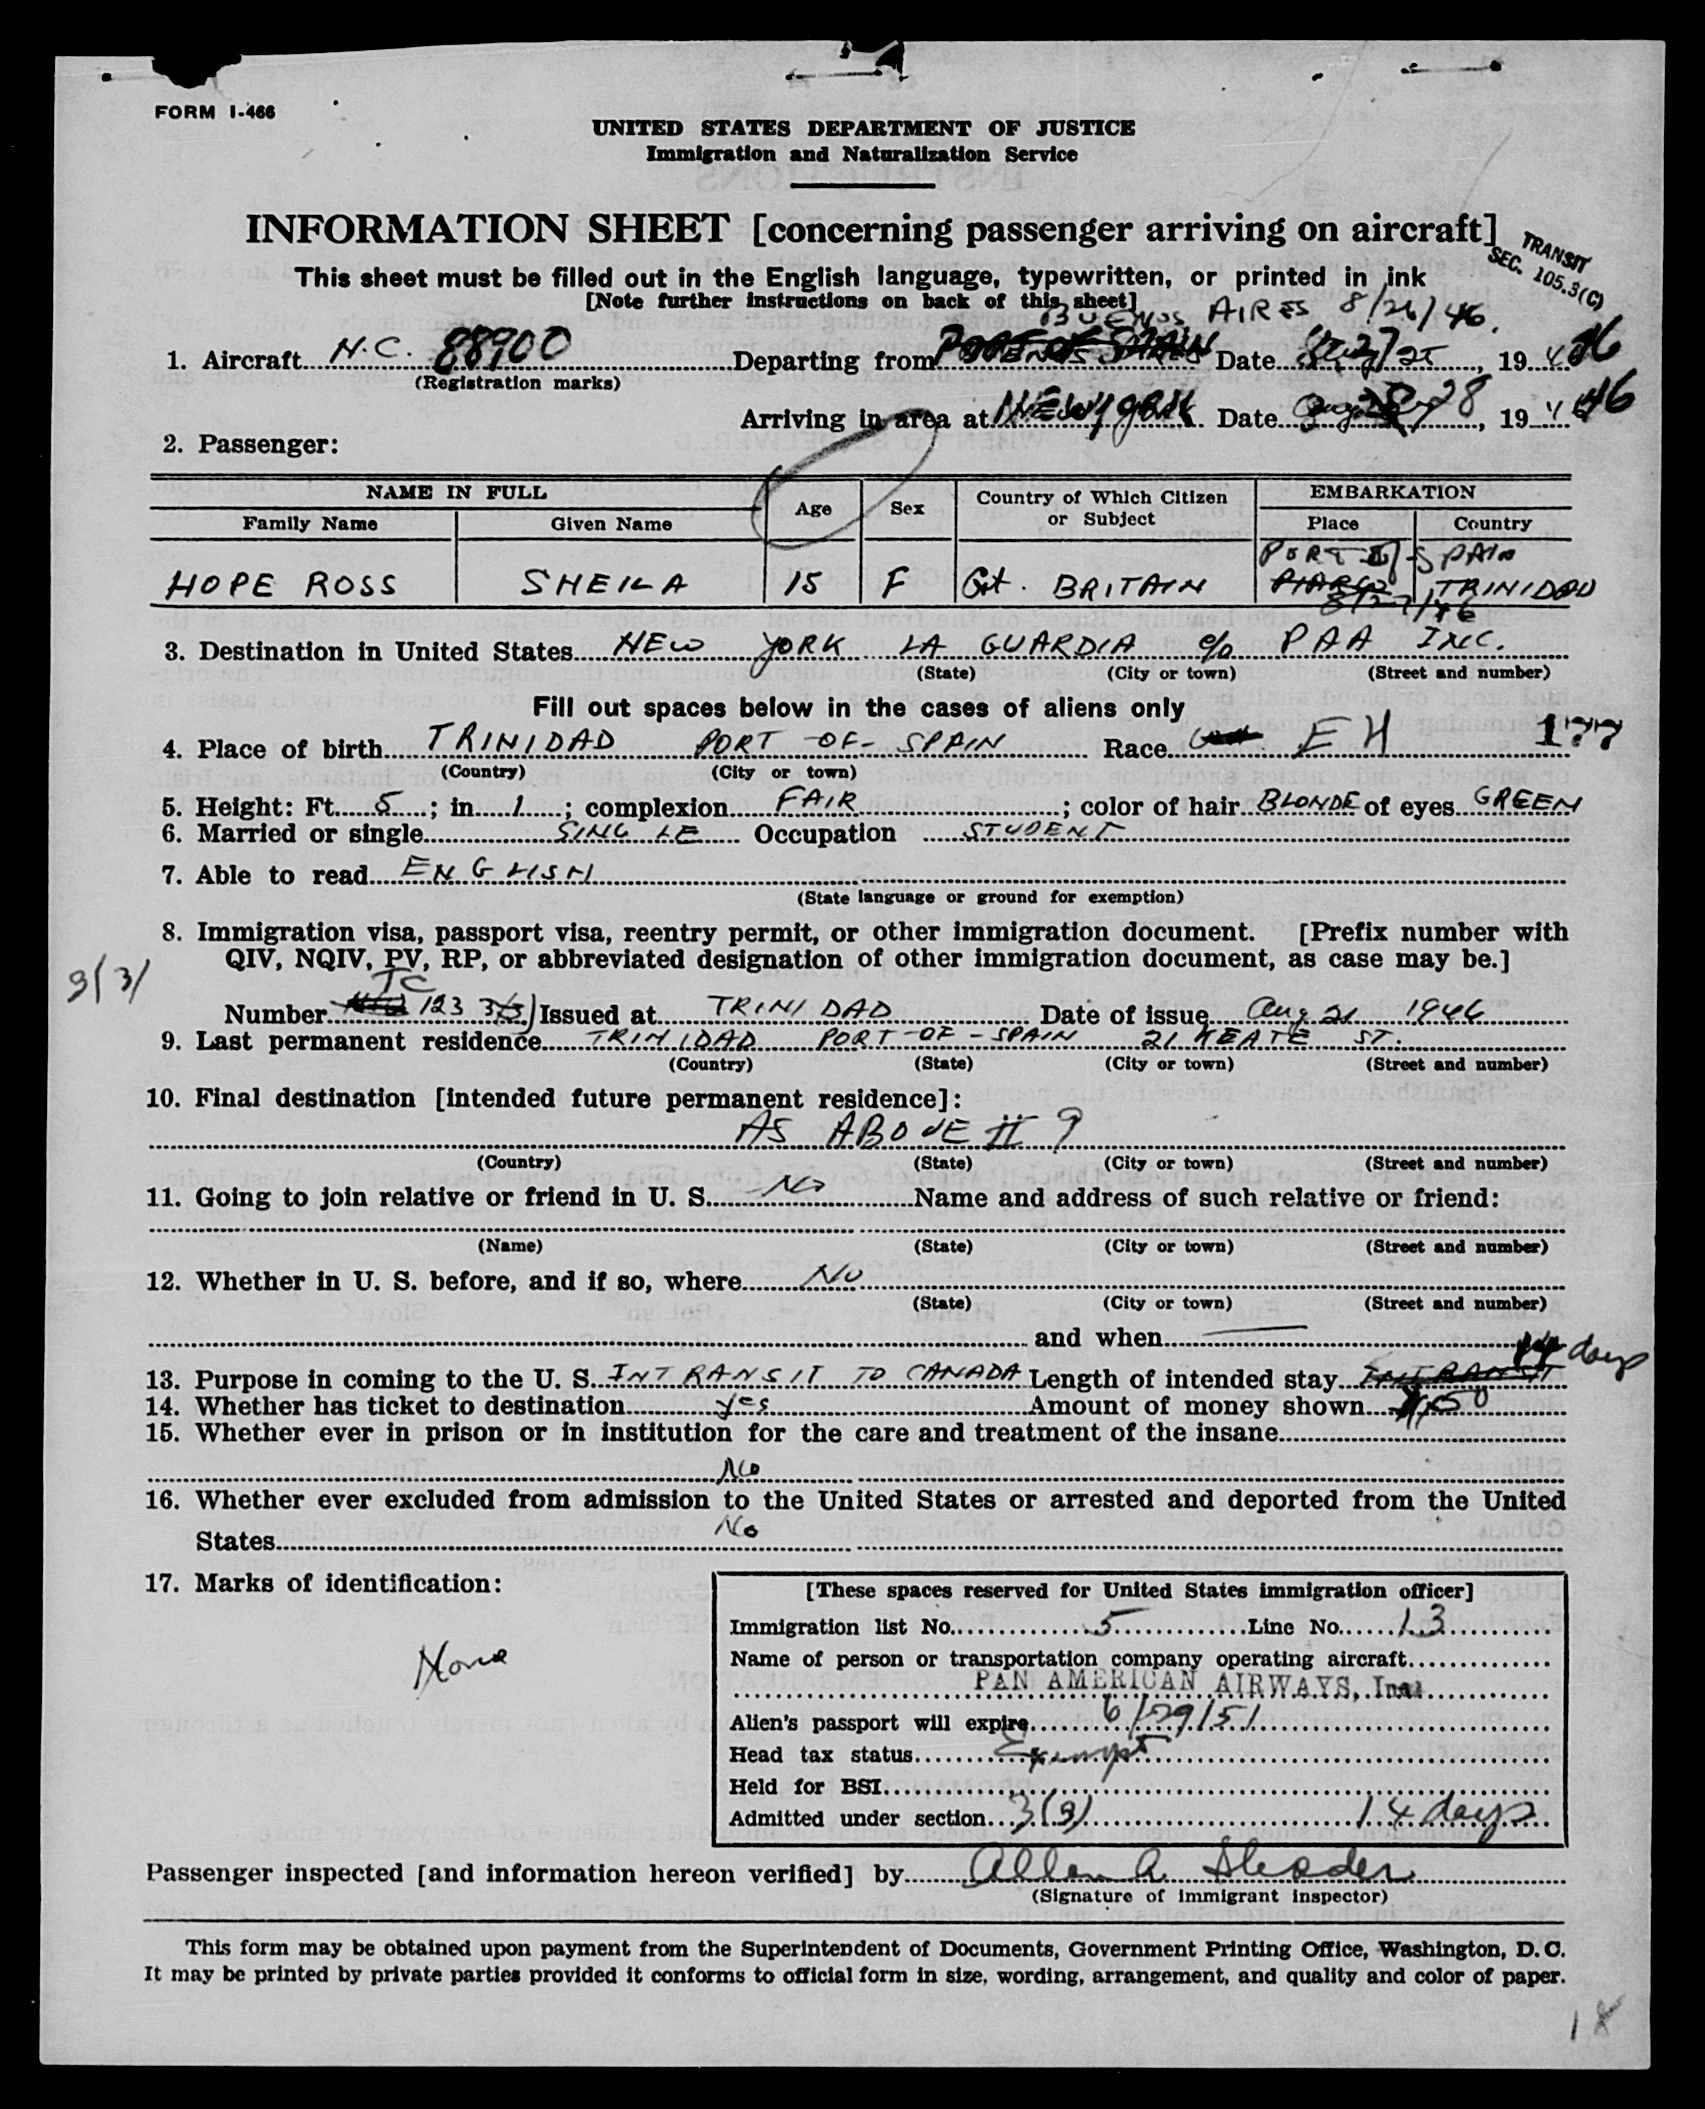 FORM I-466
UNITED STATES DEPARTMENT OF JUSTICE
Immigration and Naturalization Service
INFORMATION SHEET [concerning passenger arriving on aircraft]
TRANSIT
SEC. 105.3(C)
This sheet must be filled out in the English language, typewritten, or printed in ink
[Note further instructions on back of this sheet]
BUENOS AIRES 8/26/46.
1. Aircraft N.C. 88900 Departing from Date , 19 46
(Registration marks)
Arriving in area at NEW YORK Date Aug 28, 19 46
2. Passenger:
NAME IN FULL Age Sex Country of Which Citizen or Subject EMBARKATION
Family Name Given Name Place Country
PORT OF SPAIN
HOPE ROSS SHEILA 15 F Gt. BRITAIN PIARCO TRINIDAD
8/27/46
3. Destination in United States NEW YORK LA GUARDIA c/o PAA INC.
(State) (City or town) (Street and number)
Fill out spaces below in the cases of aliens only
4. Place of birth TRINIDAD PORT-OF-SPAIN Race EH 177
(Country) (City or town)
5. Height: Ft. 5; in. 1; complexion FAIR; color of hair BLONDE of eyes GREEN
6. Married or single SINGLE Occupation STUDENT
7. Able to read ENGLISH
(State language or ground for exemption)
8. Immigration visa, passport visa, reentry permit, or other immigration document. [Prefix number with
QIV, NQIV, PV, RP, or abbreviated designation of other immigration document, as case may be.]
TC
Number 123 Issued at TRINIDAD Date of issue Aug 21 1946
9. Last permanent residence TRINIDAD PORT-OF-SPAIN 21 KEATE ST.
(Country) (State) (City or town) (Street and number)
10. Final destination [intended future permanent residece]:
AS ABOVE # 9
(Country) (State) (City or town) (Street and number)
11. Going to join relative or friend in U. S. No Name and address of such relative or friend:
(Name) (State) (City or town) (Street and number)
12. Whether in U. S. before, and if so, where No
(State) (City or town) (Street and number)
and when —
14 days
13. Purpose in coming to the U. S. INTRANSIT TO CANADA Length of intended stay INTRANSIT
14. Whether has ticket to destination yes Amount of money shown
15. Whether ever in prison or in institution for the care and treatment of the insane
No
16. Whether ever excluded from admission to the United States or arrested and deported from the United
States No
17. Marks of identification:
None
[These spaces reserved for United States immigration officer]
Immigration list No. 5 Line No. 13
Name of person or transportation company operating aircraft
PAN AMERICAN AIRWAYS, Inc.
Alien's passport will expire 6/29/51
Head tax status Exempt
Held for BSI
Admitted under section 3(3) 14 days
Passenger inspected [and information hereon verified] by Allen A.
(Signature of immigrant inspector)
This form may be obtained upon payment from the Superintendent of Documents, Government Printing Office, Washington, D. C.
It may be printed by private parties provided it conforms to official form in size, wording, arrangement, and quality and color of paper.